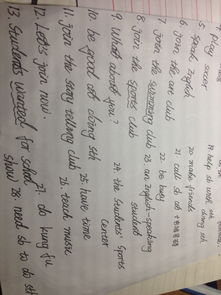 5. play soccer
6. speak English
7. join the art club
8. join the swimming club
9. join the sports club
What about you?
10. be good at doing sth
11. join the story telling club
12. Let's join now.
13. Students wanted for school show
20. make friends
21. call sb at
22. be busy
23. an English-speaking student
24. the Students' Sports Center
25. have time
26. teach music
27. do kung fu
28. need sb to do sth